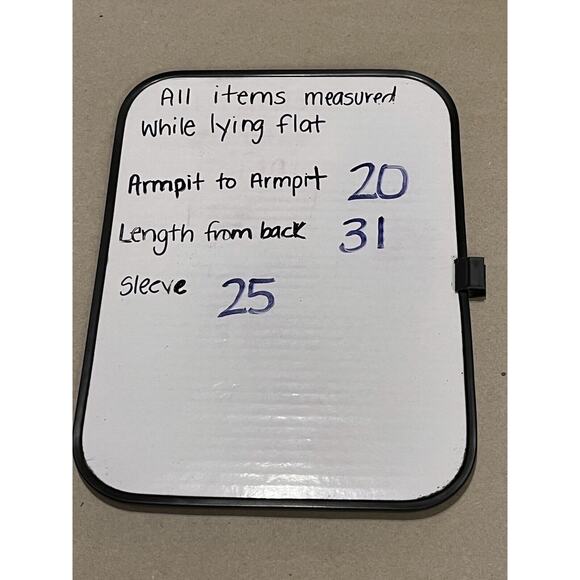 All items measured
while lying flat
Armpit to Armpit 20
Length from back 31
Sleeve 25